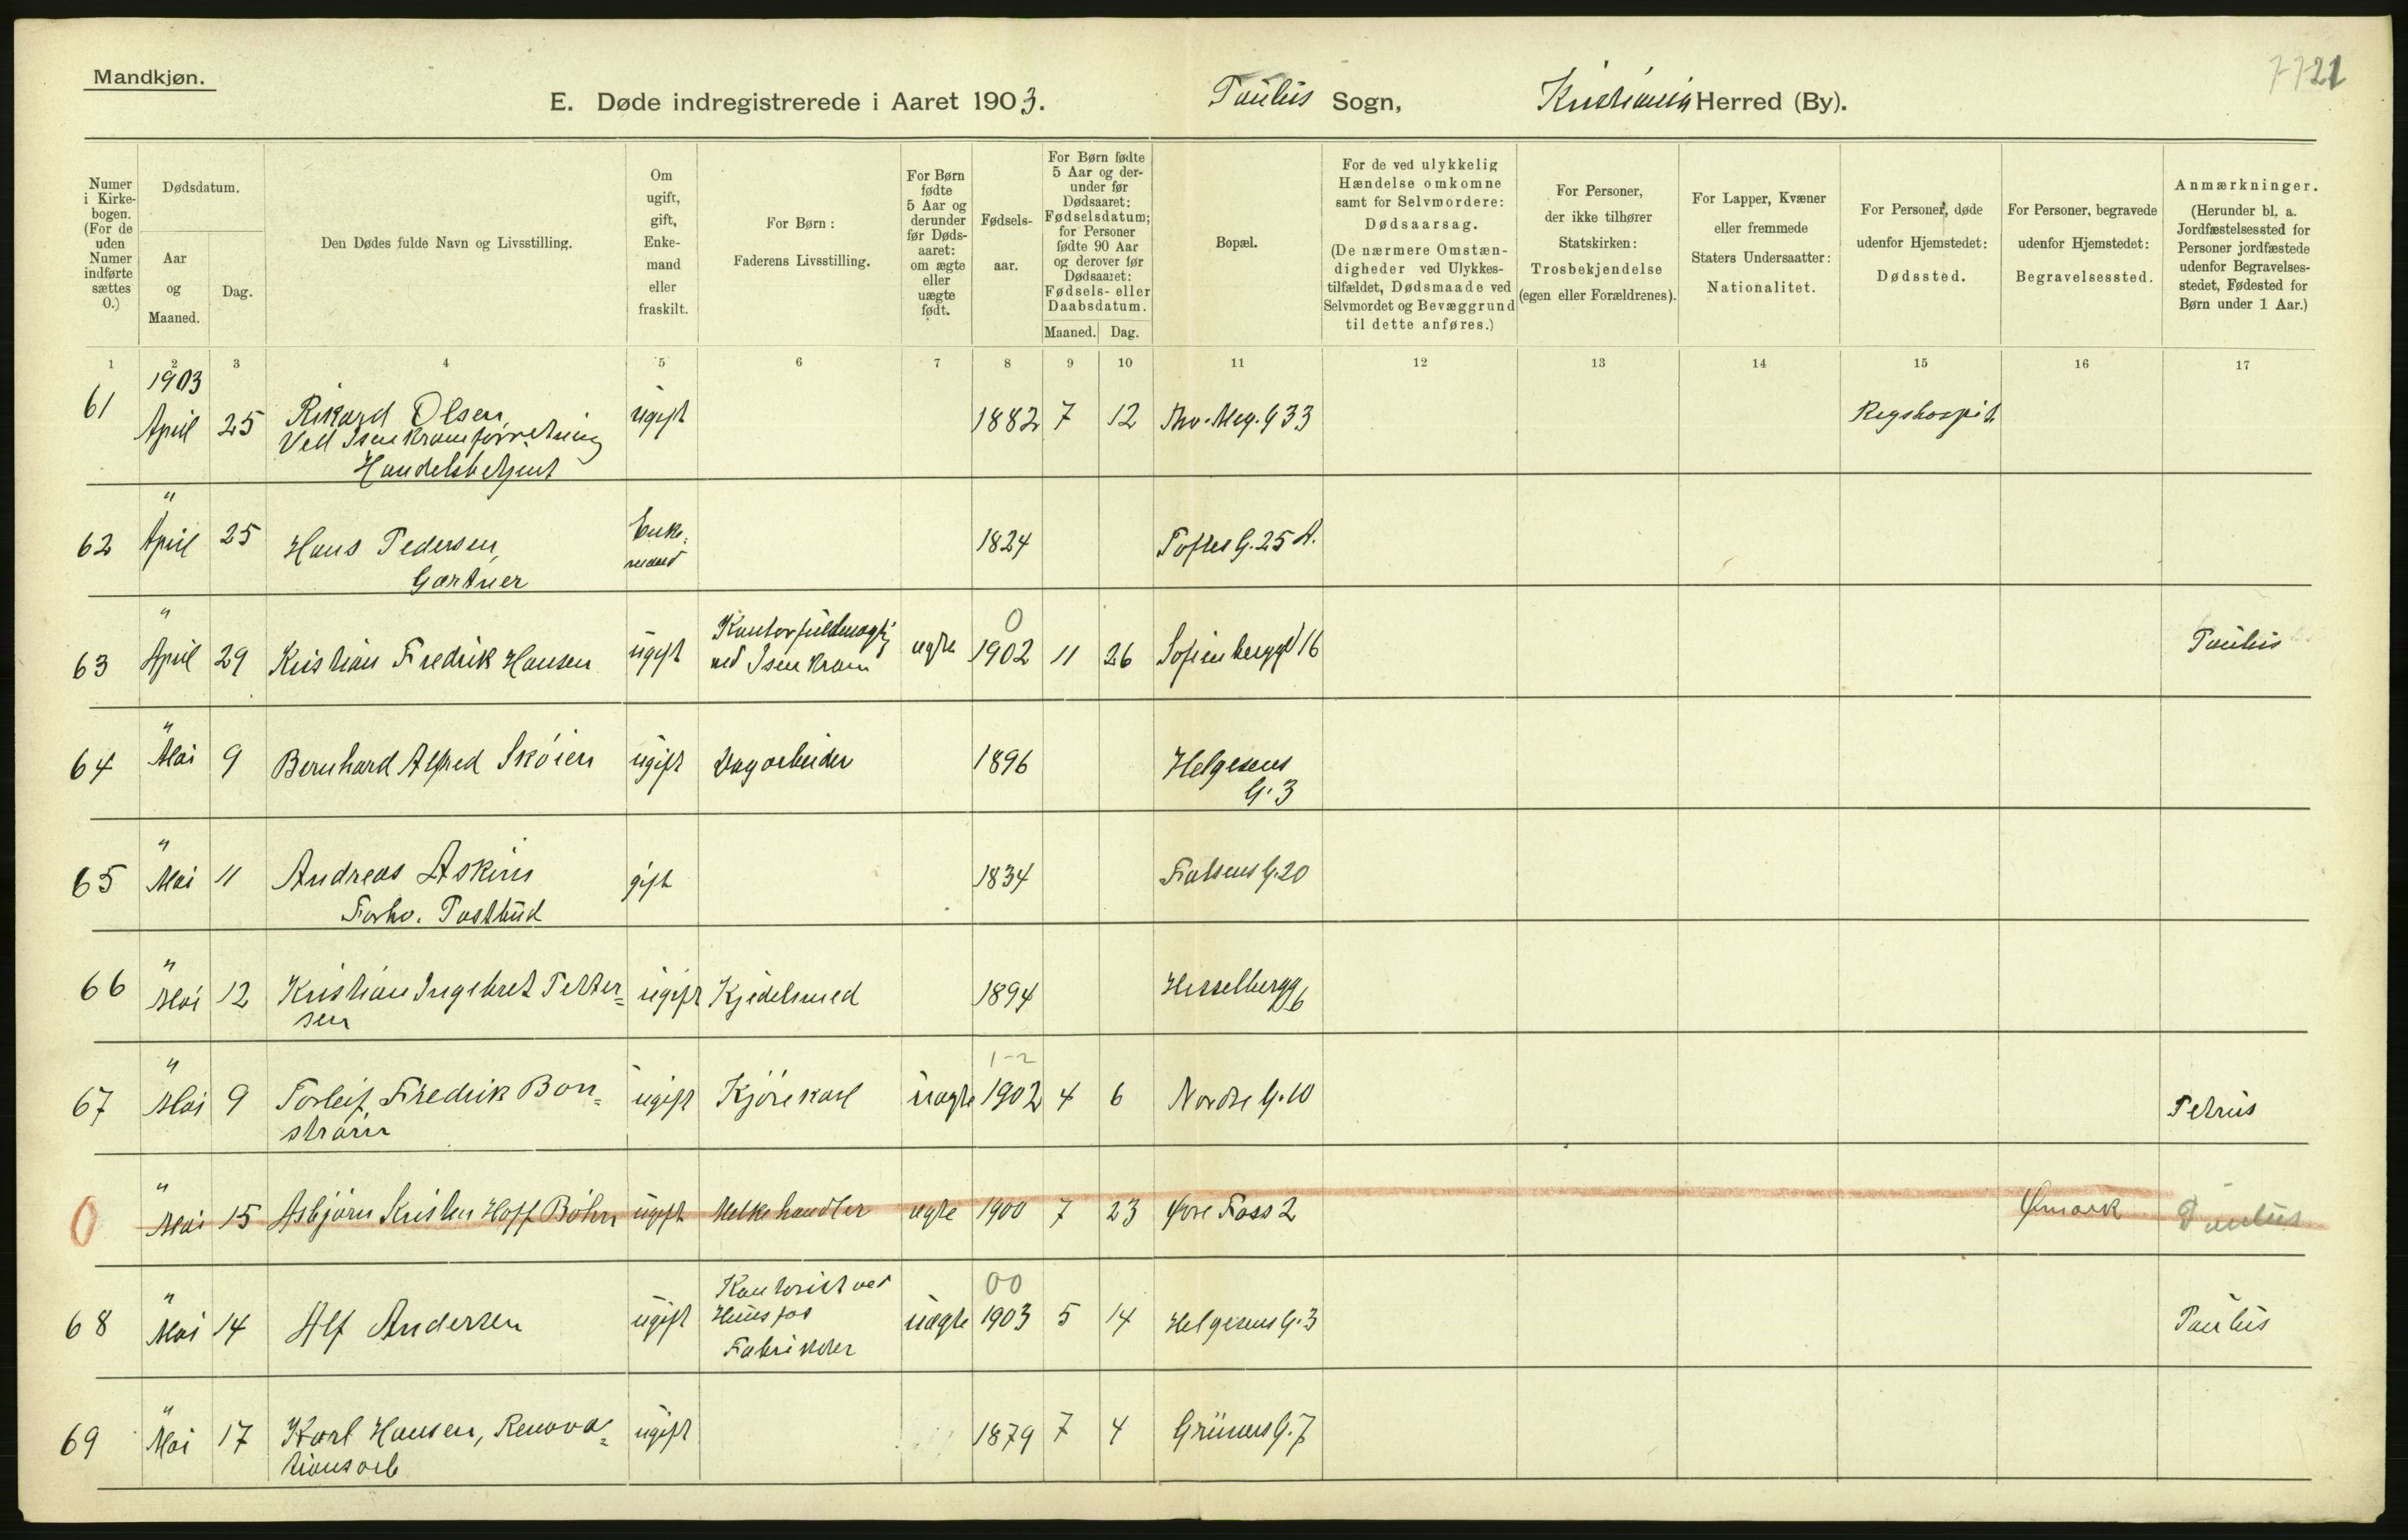 Mandkjøn.
7721
E. Døde indregistrerede i Aaret 1903. Paulus Sogn, Kristiania Herred (By).
Numer i Kirkebogen. (For de uden Numer indførte sættes 0.)
Dødsdatum.
Aar og Maaned.
Dag.
Den Dødes fulde Navn og Livsstilling.
Om ugift, gift, Enkemand eller fraskilt.
For Børn: Faderens Livsstilling.
For Børn fødte 5 Aar og derunder før Dødsaaret: om ægte eller uægte født.
Fødselsaar.
For Børn fødte 5 Aar og derunder før Dødsaaret: Fødselsdatum; for Personer fødte 90 Aar og derover før Dødsaaret: Fødsels- eller Daabsdatum.
Maaned. Dag.
Bopæl.
For de ved ulykkelig Hændelse omkomne samt for Selvmordere: Dødsaarsag. (De nærmere Omstændigheder ved Ulykkestilfældet, Dødsmaade ved Selvmordet og Bevæggrund til dette anføres.)
For Personer, der ikke tilhører Statskirken: Trosbekjendelse (egen eller Forældrenes).
For Lapper, Kvæner eller fremmede Staters Undersaatter: Nationalitet.
For Personer, døde udenfor Hjemstedet: Dødssted.
For Personer, begravede udenfor Hjemstedet: Begravelsessted.
Anmærkninger. (Herunder bl. a. Jordfæstelsessted for Personer jordfæstede udenfor Begravelsesstedet, Fødested for Børn under 1 Aar.)
1 2 3 4 5 6 7 8 9 10 11 12 13 14 15 16 17
1903
61 April 25 Rikard Olsen ugift 1882 7 12 Thv. Mey. G 33 Rigshospit
Ved Isenkramforretning
Handelsbetjent
62 " April 25 Hans Pedersen, Enkemand 1824 Toftes G. 25 A.
Gartner
0
63 " April 29 Kristian Fredrik Hansen ugift Kontorfuldmægtig ved Isenkram ægte 1902 11 26 Sofienbergg 16 Paulus
64 " Mai 9 Bernhard Alfred Skøien ugift Dagarbeider 1896 Helgesens G. 3
65 " Mai 11 Andreas Askim gift 1834 Falsens G. 20
Forhv. Postbud
66 " Mai 12 Kristian Ingebret Pettersen ugift Kjedelsmed 1894 Hesselbergg 6
1-2
67 " Mai 9 Torleif Fredrik Bonstrøm ugift Kjørekarl uægte 1902 4 6 Nordre G. 10 Petrus
0 " Mai 15 Asbjørn Kristen Hoff Bøhn ugift Melkehandler ægte 1900 7 23 Øvre Foss 2 Ømark Paulus
00
68 " Mai 14 Alf Andersen ugift Kontorist ved Hunsfos Fabrikker uægte 1903 5 14 Helgesens G. 3 Paulus
69 " Mai 17 Karl Hansen, Renovationsarb ugift 1879 7 4 Grüners G. 7